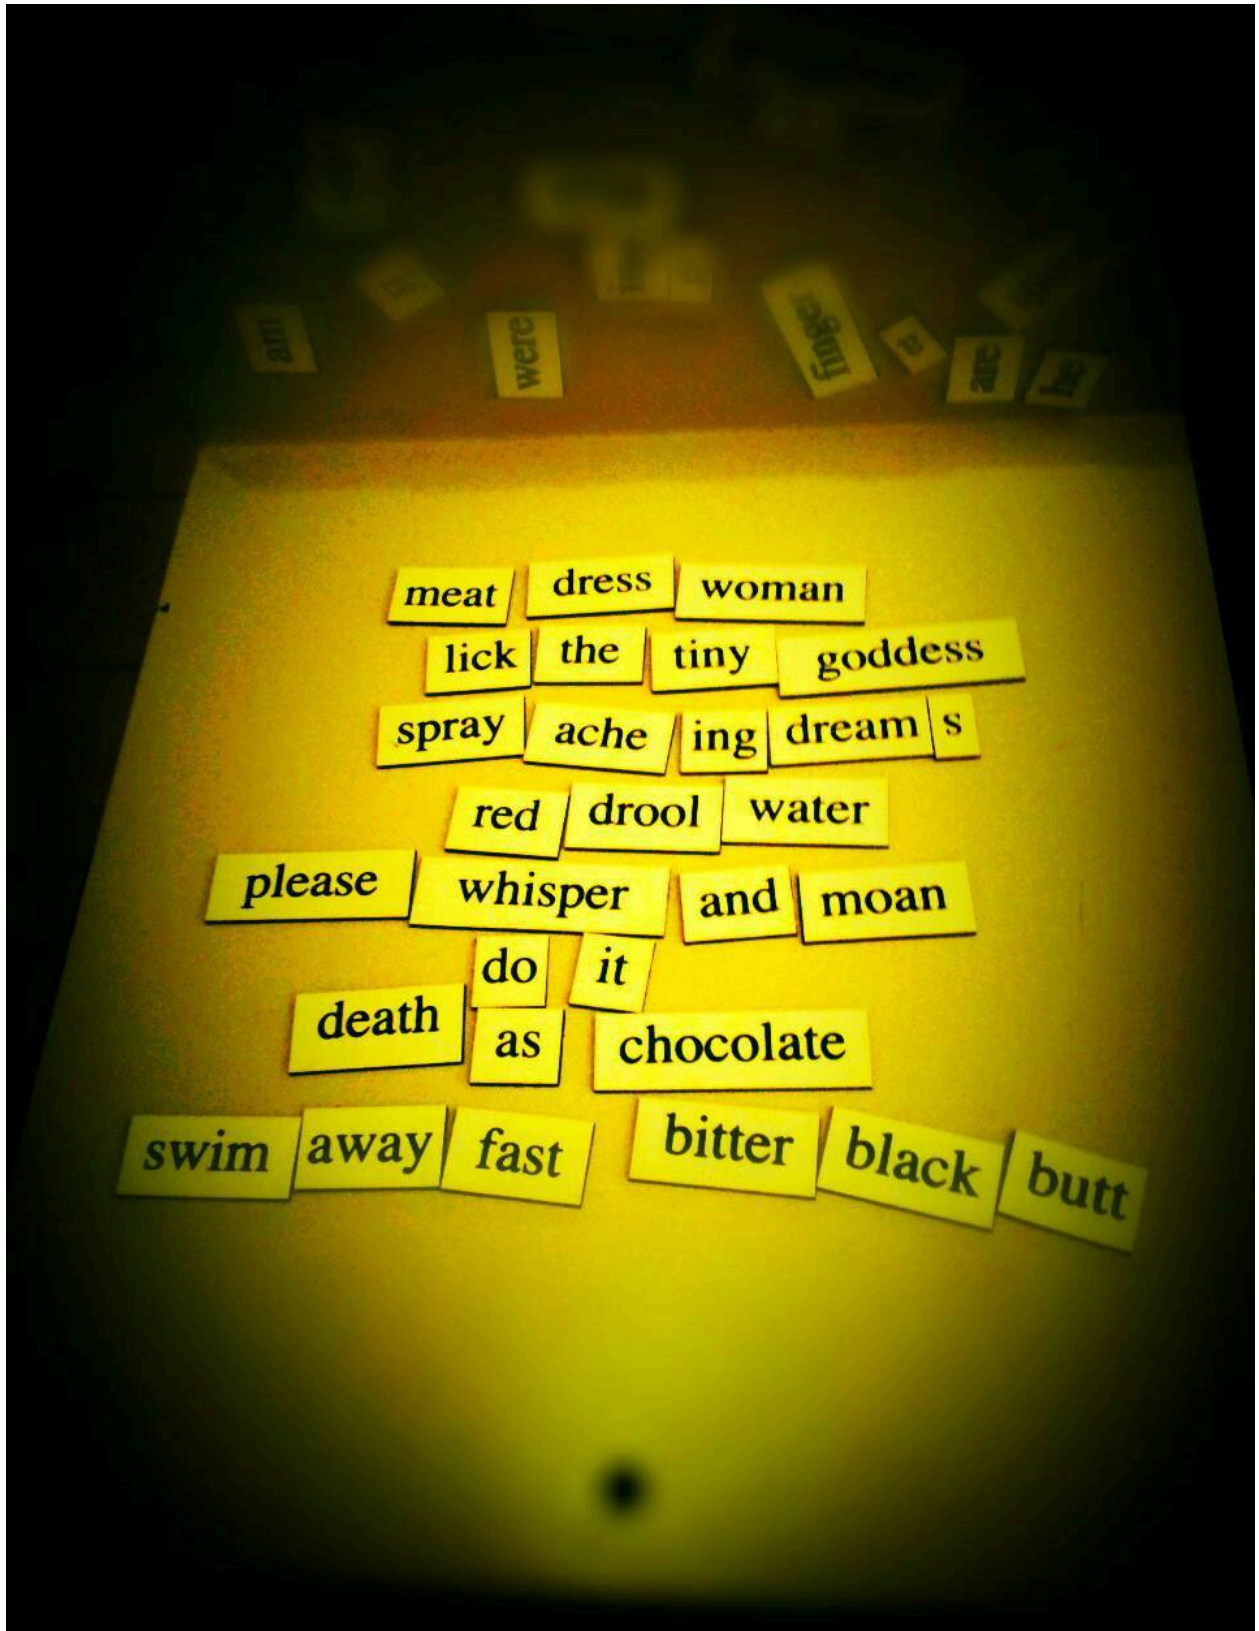 am
were
finger
a
are
be
meat dress woman
lick the tiny goddess
spray ache ing dream s
red drool water
please whisper and moan
do it
death as chocolate
swim away fast bitter black butt